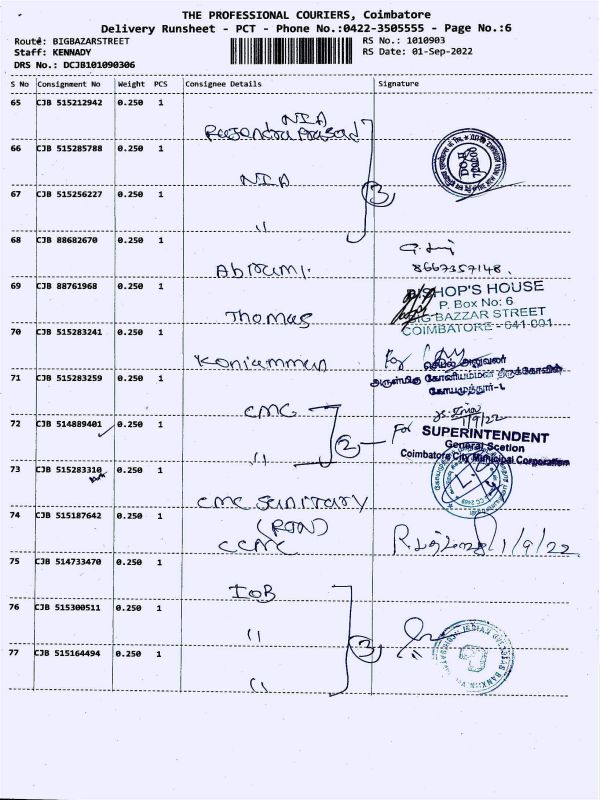 THE PROFESSIONAL COURIERS, Coimbatore
Delivery Runsheet - PCT - Phone No.:0422-3505555 - Page No.:6
Route: BIGBAZARSTREET
RS No.: 1010903
Staff: KENNADY
RS Date: 01-Sep-2022
DRS No.: DCJB101090306
S No Consignment No Weight PCS Consignee Details Signature
65 CJB 515212942 0.250 1
NIA
Rajendra Prasad
66 CJB 515285788 0.250 1
NIA
67 CJB 515256227 0.250 1
"
3
68 CJB 88682670 0.250 1
Abirami.
8667357148.
69 CJB 88761968 0.250 1
Thomas
BISHOP'S HOUSE
P. Box No: 6
BIG BAZZAR STREET
COIMBATORE - 641 001
70 CJB 515283241 0.250 1
Koniamman
செயல் அலுவலர்
அருள்மிகு கோனியம்மன் திருக்கோவில்
கோயமுத்தூர்-1
71 CJB 515283259 0.250 1
CMC
1/9/22
72 CJB 514889401 0.250 1
"
2
for SUPERINTENDENT
General Scetion
Coimbatore City Municipal Corporation
73 CJB 515283310 0.250 1
CMC Sanitary
74 CJB 515187642 0.250 1
CCMC
1/9/22
75 CJB 514733470 0.250 1
IOB
76 CJB 515300511 0.250 1
"
3
77 CJB 515164494 0.250 1
"